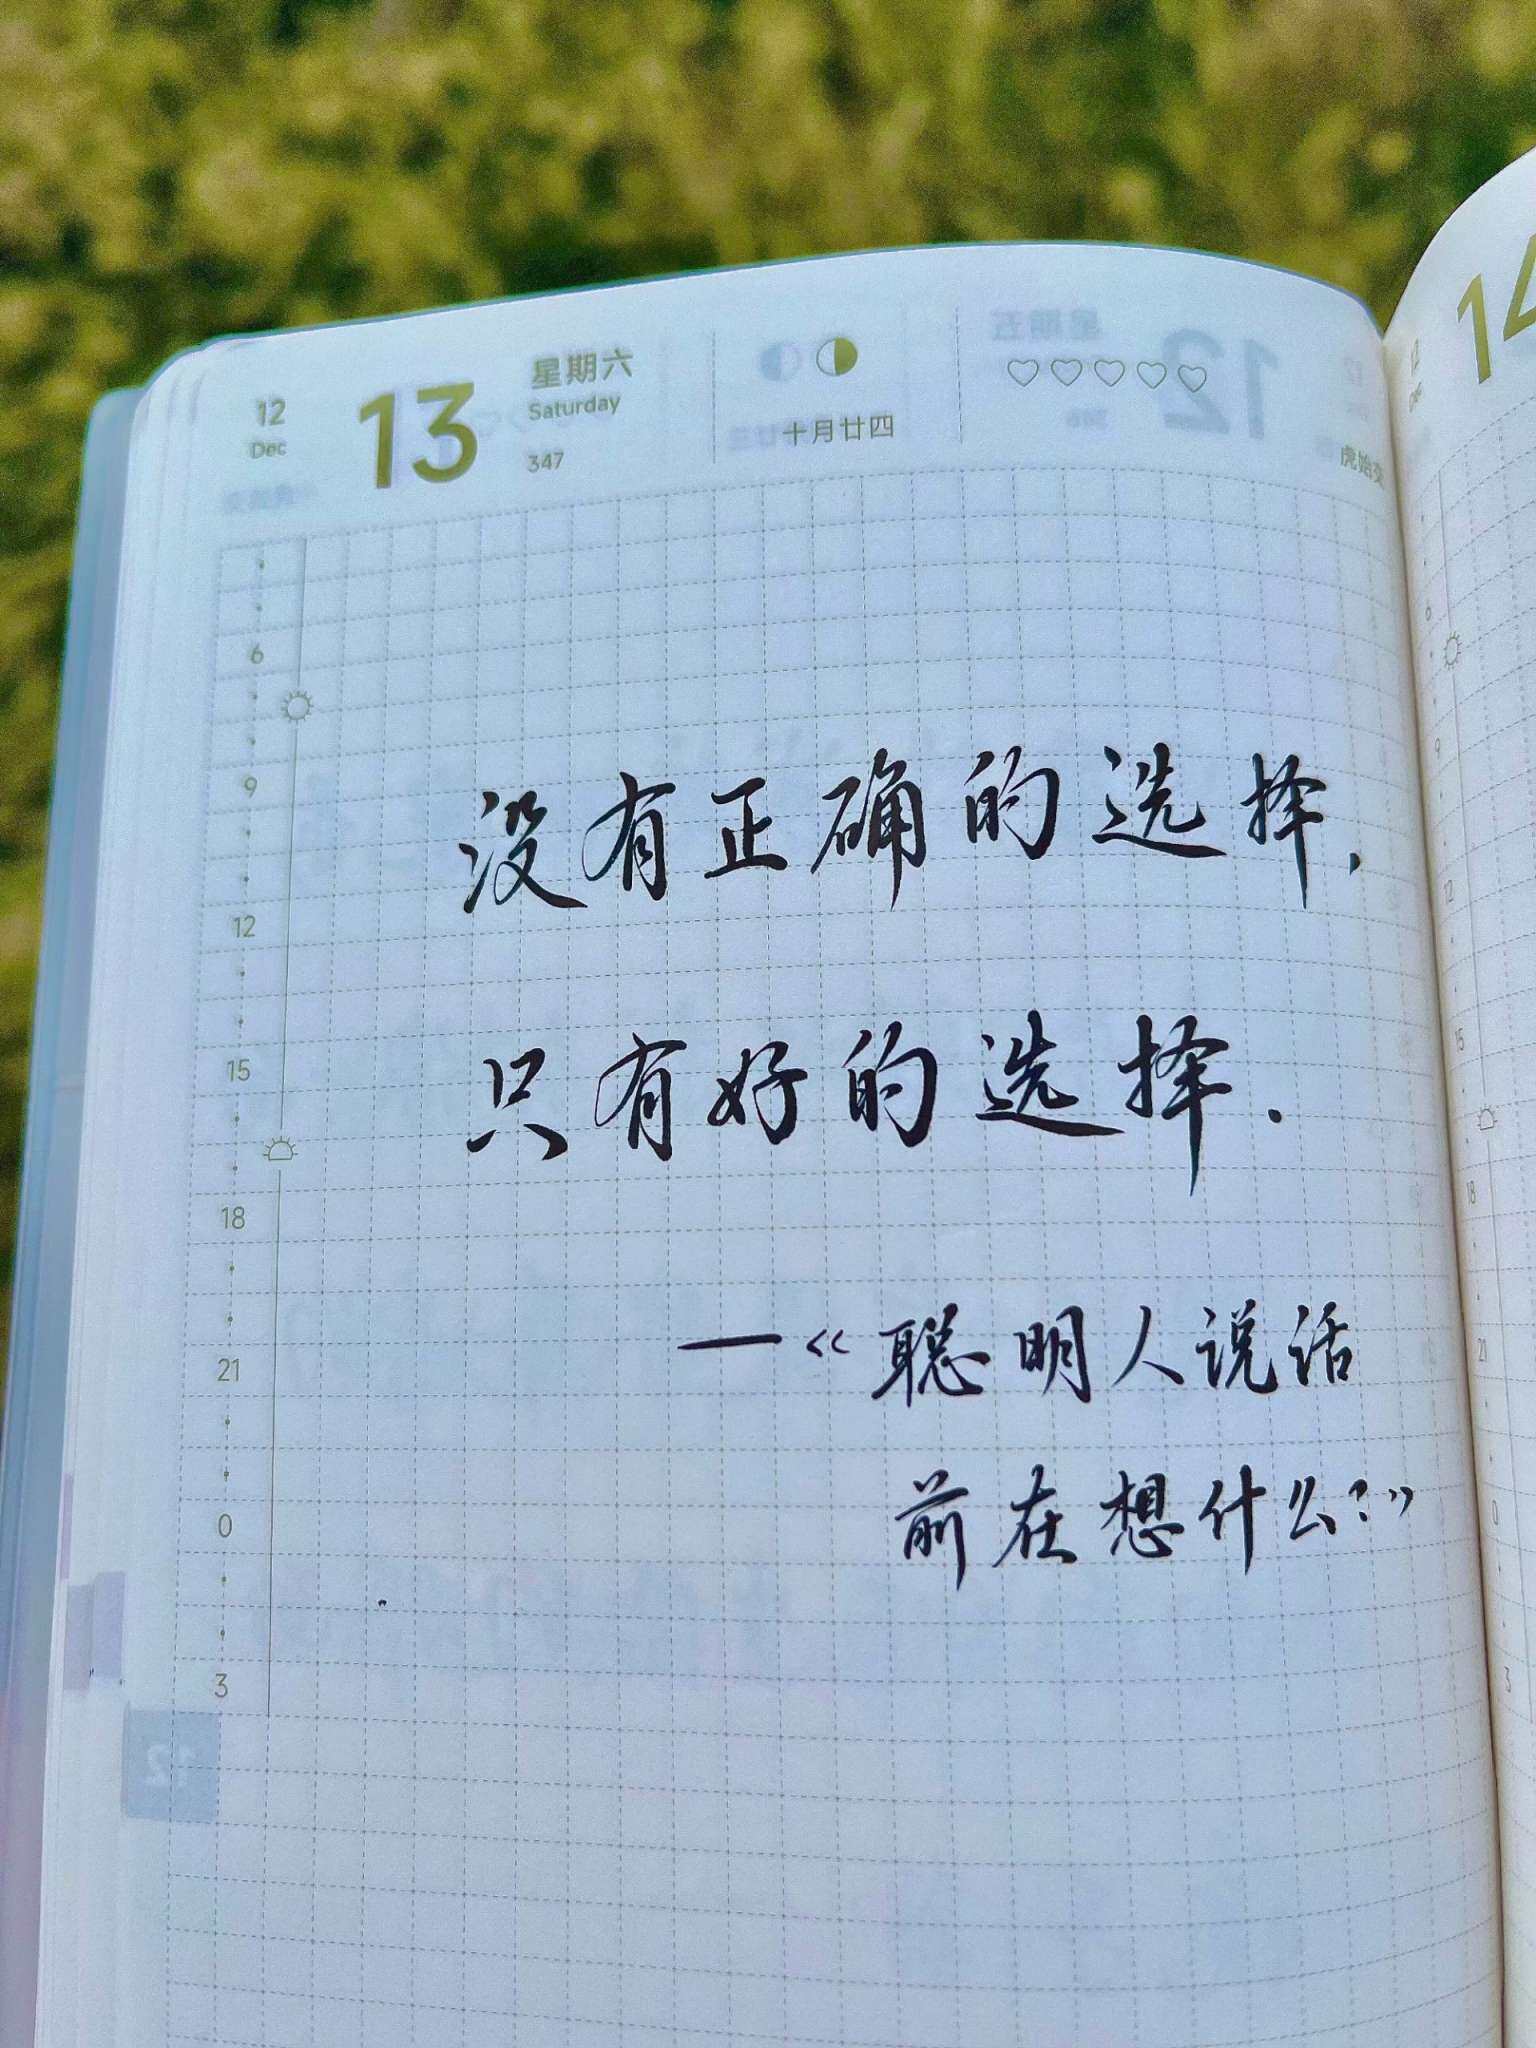 12
Dec
13
星期六
Saturday
347
十月廿四
虎始交
14
6
9
12
15
18
21
0
3
没有正确的选择,
只有好的选择.
—《聪明人说话
前在想什么?》
12